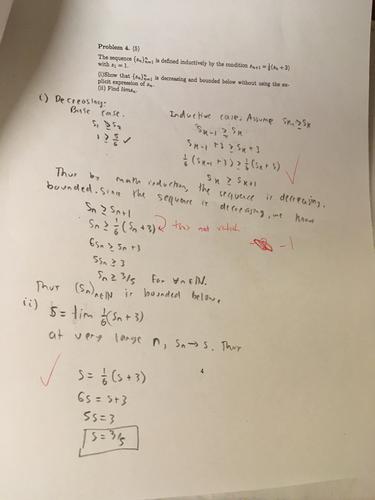 Problem 4. (5)
The sequence {sₙ}ₙ₌₁^∞ is defined inductively by the condition sₙ₊₁ = 1/6(sₙ + 3)
with s₁ = 1.
(i)Show that {sₙ}ₙ₌₁^∞ is decreasing and bounded below without using the ex-
plicit expression of sₙ.
(ii) Find lim sₙ.
(i) Decreasing:
Base case.
S₁ ≥ S₂
1 ≥ 4/6 ✓
Inductive case. Assume
Sₖ₋₁ ≥ Sₖ
Sₖ₋₁ + 3 ≥ Sₖ + 3
1/6 (Sₖ₋₁ + 3) ≥ 1/6 (Sₖ + 3)
Sₖ ≥ Sₖ₊₁
Thus by math induction, the sequence is decreasing.
bounded. Since the sequence is decreasing, we know
Sₙ ≥ Sₙ₊₁
Sₙ ≥ 1/6 (Sₙ + 3) not
-1
6Sₙ ≥ Sₙ + 3
5Sₙ ≥ 3
Sₙ ≥ 3/5 for ∀n∈ℕ.
Thus (Sₙ)ₙ∈ℕ is bounded below.
ii) S = lim 1/6 (Sₙ + 3)
at very large n, Sₙ → S. Thus
✓
S = 1/6 (S + 3)
4
6S = S + 3
5S = 3
S = 3/5